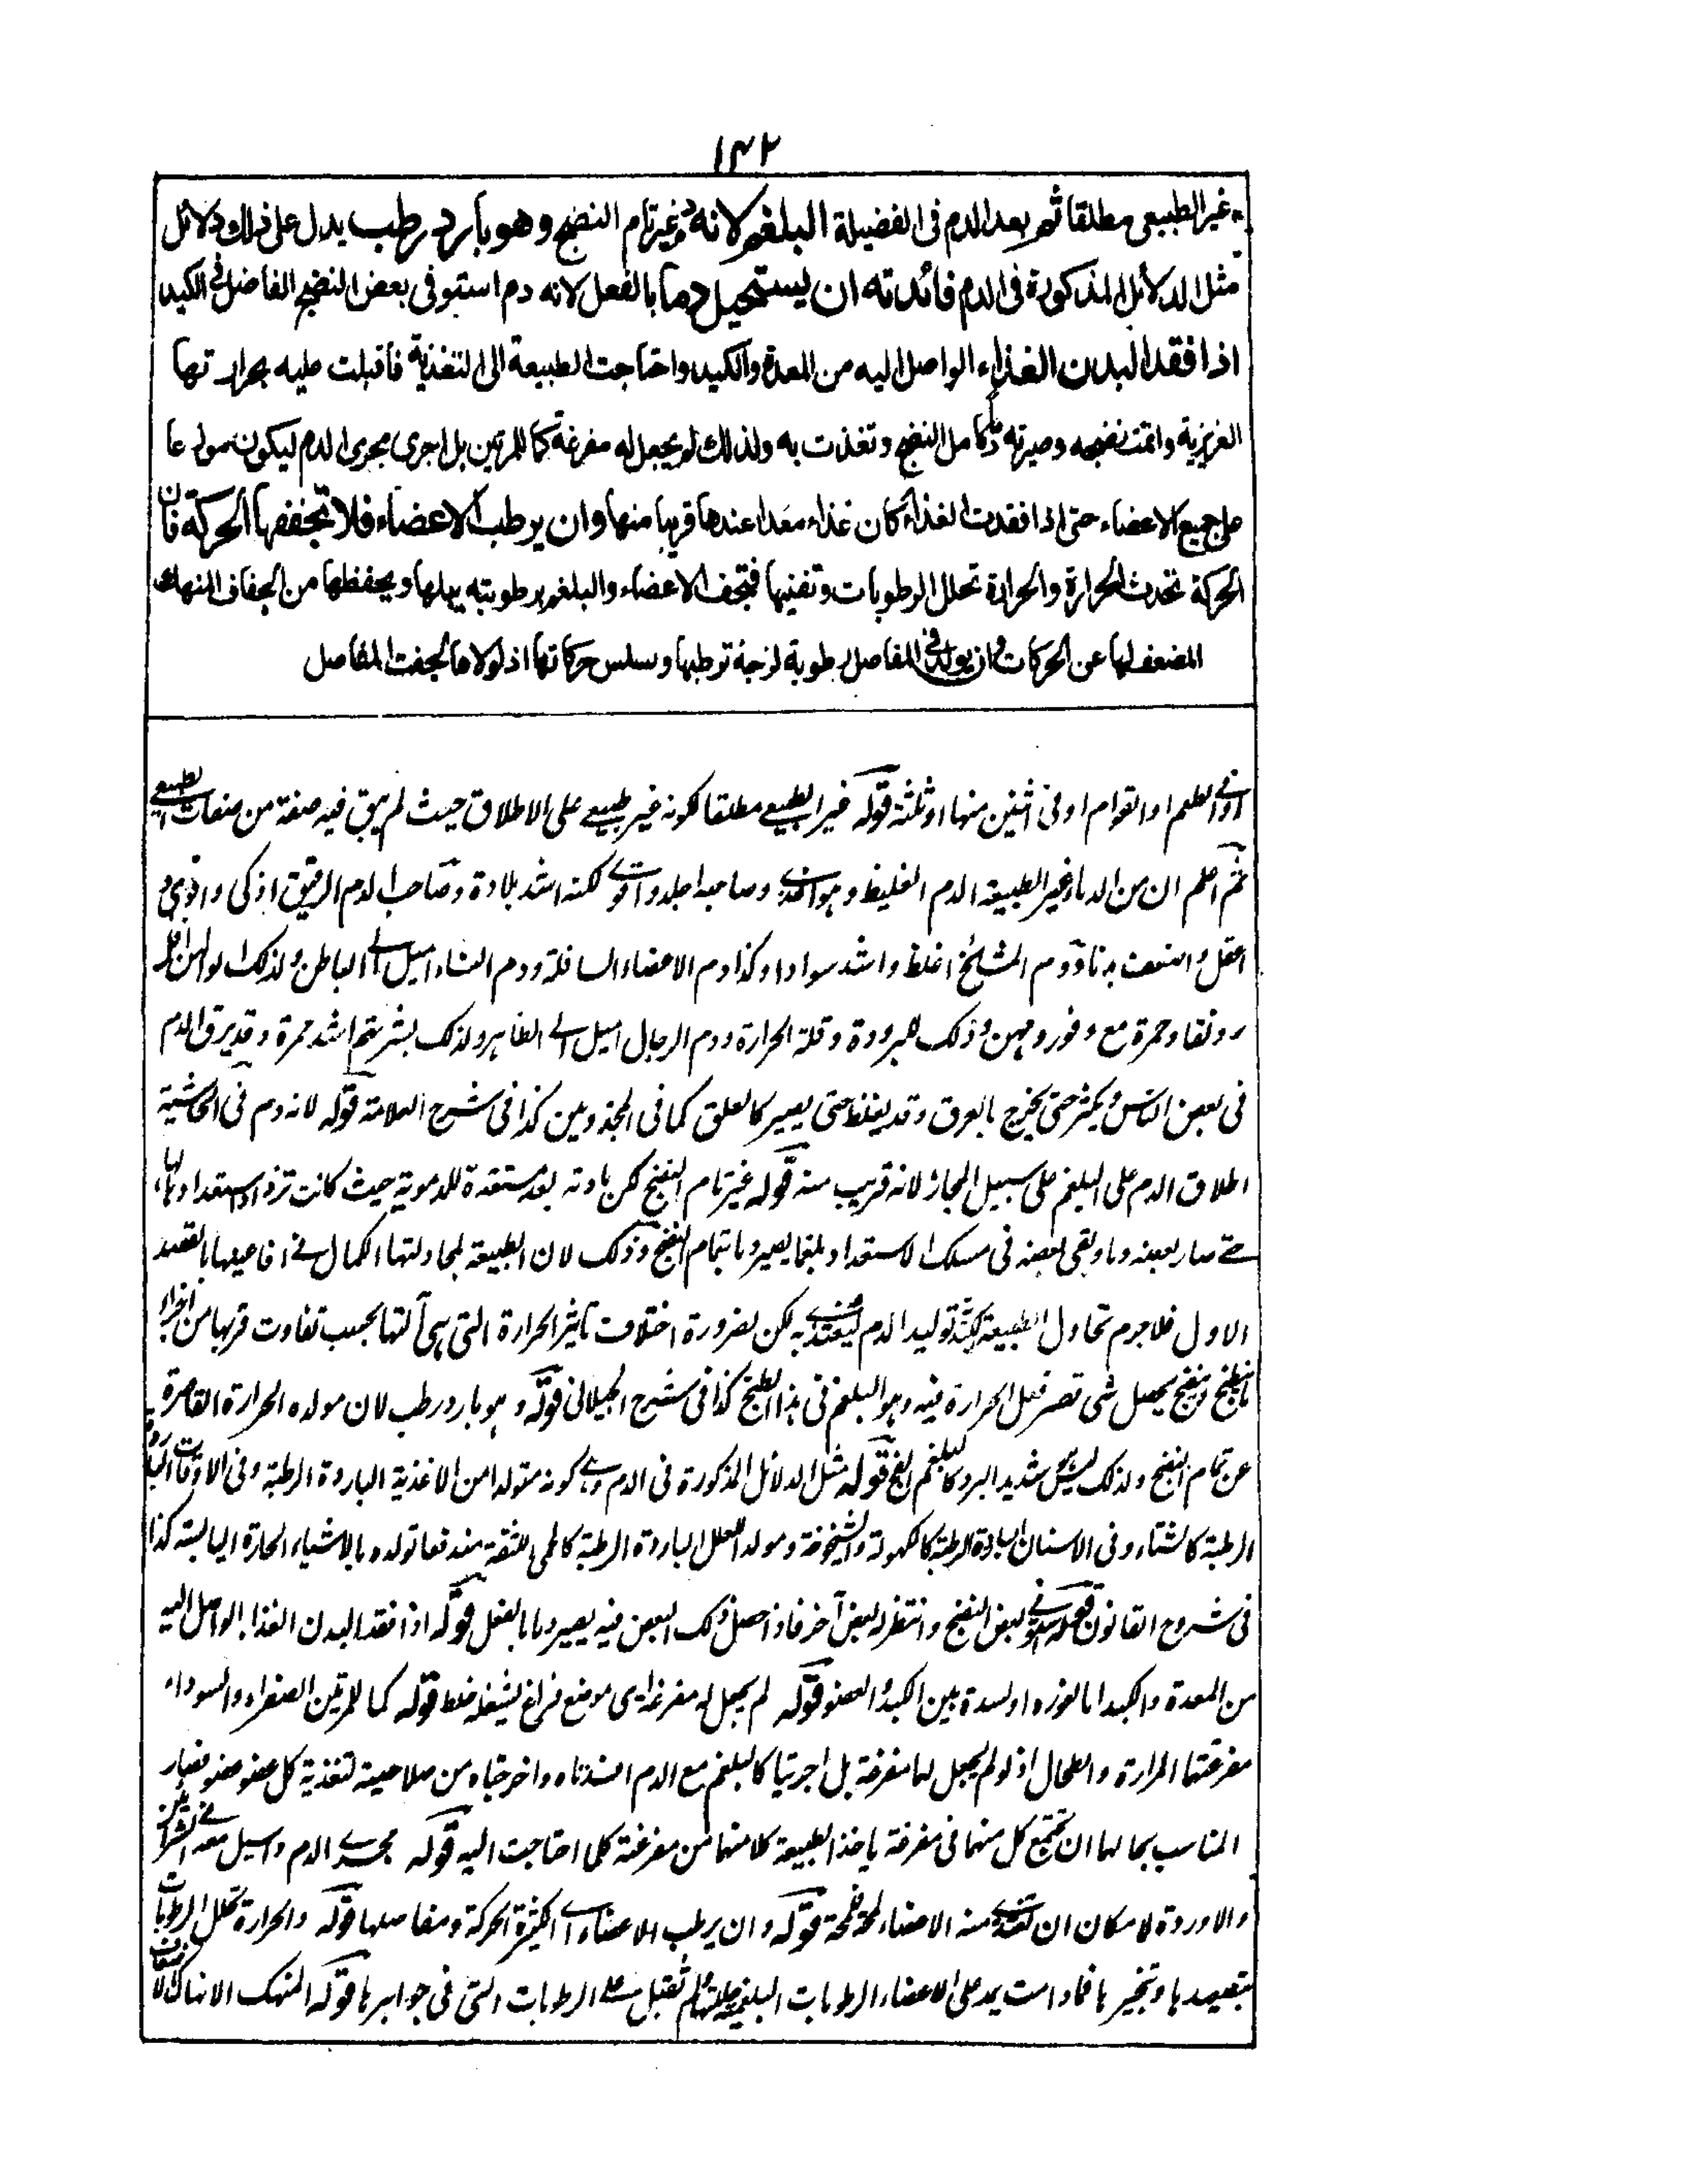 ١٤٢
غير الطبيعى مطلقا ثم بعد الدم فى الفضيلة البلغم لانه دم غير تام النضج وهو بارد رطب يدل على ذلك دلائل
مثل الدلائل المذكورة فى الدم فائدته ان يستحيل دما بالفعل لانه دم استوفى بعض النضج الفاضل فى الكبد
اذا فقد البدن الغذاء الواصل اليه من المعدة والكبد واحتاجت الطبيعة الى التغذية فاقبلت عليه بحرارتها
الغريزية واتمت نضجه وصيرته دما كامل النضج وتغذت به ولذلك لم يجعل له مفرغة كما للمرتين بل اجرى مجرى الدم ليكون موزعا
على جميع الاعضاء حتى اذا فقدت الغذاء كان غذاء معدا عندها قريبا منها وان يرطب الاعضاء فلا تجففها الحركة فان
الحركة تحدث الحرارة والحرارة تحلل الرطوبات وتفنيها فتجف الاعضاء والبلغم برطوبته يبلها ويحفظها من الجفاف المنهك
المضعف لها عن الحركات وان يولد فى المفاصل رطوبة لزجة ترطبها وسلس حركاتها اذ لولاها لجفت المفاصل
او فى الطعم او القوام او فى اثنين منها او ثلثة قوله غير الطبيعے مطلقا لكونه غير طبيعے على الاطلاق حيث لم يبق فيه صفة من صفات الطبيعے
ثم اعلم ان من الدماء غير الطبيعية الدم الغليظ وهو وصاحبه اجلد واقوے لكنه اشد بلادة وصاحب الدم الرقيق اذكى و
اعقل واضعف بدنا ودم المشائخ اغلظ واشد سوادا وكذا دم الاعضاء السافلة ودم النساء اميل الے الباطن ولذلك الوانهن اقل
رونقا وحمرة مع وفور دمهن وذلك للبرودة وقلة الحرارة ودم الرجال اميل الے الظاهر ولذلك بشرتهم اشد حمرة وقد يرق الدم
فى بعض الناس ويكثر حتى يخرج بالعرق وقد يغلظ حتى يصير كالعلق كما فى المجذومين كذا فى شرح العلامة قوله لانه دم فى الحاشية
اطلاق الدم على البلغم على سبيل المجاز لانه قريب منه قوله غير تام النضج لكن مادته بعد مستعدة للدموية حيث كانت استعدادها
حتے صار بعضه دما وبقى بعضه فى مسلك الاستعداد بلغما يصير دما بتمام النضج وذلك لان الطبيعة لمحاولتها الكمال فے افاعيلها بالقصد
الاول فلاجرم تحاول الطبيعة توليد الدم ليغتذے به لكن لضرورة اختلاف تاثير الحرارة التى هى آلتها بحسب تفاوت قربها من اجزاء
ما ينطبخ وينضج يحصل شى قصر فعل الحرارة فيه وهو البلغم فى هذا الطبخ كذا فى شرح الجيلانى قوله وهو بارد رطب لان مولده الحرارة القاصرة
عن تمام النضج ولذلك ليس شديد البرد كالبلغم الفج قوله مثل الدلائل المذكورة فى الدم وهے كونه متولدا من الاغذية الباردة الرطبة وفى الاوقات الباردة
الرطبة كالشتاء وفى الاسنان الباردة الرطبة كالكهولة والشيخوخة ومولد العلل الباردة الرطبة كالحمى اللثقة مندفعا تولده بالاشياء الحارة اليابسة كذا
فى شروح القانون قوله استوفے بعض النضج وانتظر لبعض آخر فاذا حصل ذلك البعض فيه يصير دما بالفعل قوله اذا فقد البدن الغذاء الواصل اليه
من المعدة والكبد اما لعوزه او لسدة بين الكبد والعضو قوله لم يجعل له مفرغة اى موضع فراغ يشغله خلط قوله كما للمرتين الصفراء والسوداء
مفرغتها المرارة والطحال اذ لو لم يجعل لهما مفرغة بل اجريتا كالبلغم مع الدم افسدتاه واخرجتاه من صلاحيته لتغذية كل عضو عضو فصار
المناسب بحالها ان تجتمع كل منهما فى مفرغة ياخذ الطبيعة كلا منهما من مفرغته كلما احتاجت اليه قوله مجرے الدم واسيل معه فے الشرائين
والاوردة لامكان ان تغتذے منه الاعضاء لمحة فلمحة قوله وان يرطب الاعضاء اے الكثيرة الحركة ومفاصلها قوله والحرارة تحلل الرطوبات
بتصعيدها وتبخيرها فما دامت يمد على الاعضاء الرطوبات البلغمية لم تقبل علے الرطوبات التى فى جواهرها قوله المنهك الانهاك